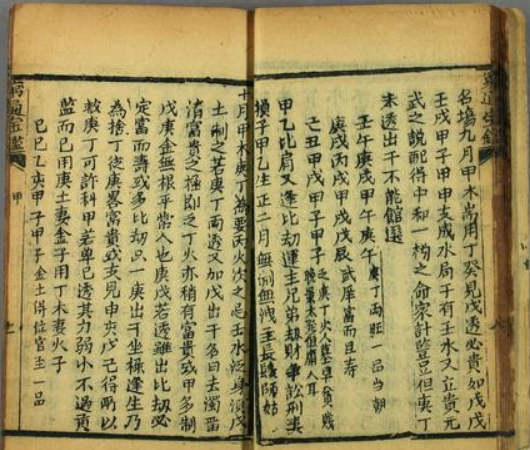 窮通寶鑑
名塲九月甲木耑用丁癸見戊透必貴如戊戌
壬戌甲子甲申支成水局干有壬水又立貴元
武之說配得中和一榜之命家計豐盈但庚丁
未透出干不能館選
壬午庚戌甲午庚午 庚丁兩旺一品当朝
庚戌丙戌甲戌戊辰 武犀富而且壽
己丑甲戌甲子甲子 乏庚丁火
但庸人耳
甲乙比肩又逢比刼運主兄弟刼財爭訟刑妻
損子甲乙生正二月無剋無洩主長髮師姑
十月甲木庚丁為要丙火次之忌壬水泛身須戊
土制之若庚丁兩透又加戊出干名曰去濁畱
清富貴之極即乏丁火亦稍有富貴或甲多制
戊庚金無根平常人也庚戊若透雖出比刼必
定富而壽或多比刼只一庚出干坐祿逢生乃
為捨丁從庚畧富貴或支見申亥戊己得所以
救庚丁可許科甲若單己透其力弱小不過貢
監而已用庚土妻金子用丁木妻火子
己巳乙亥甲子甲子金土得位官至一品
窮通寶鑑
甲